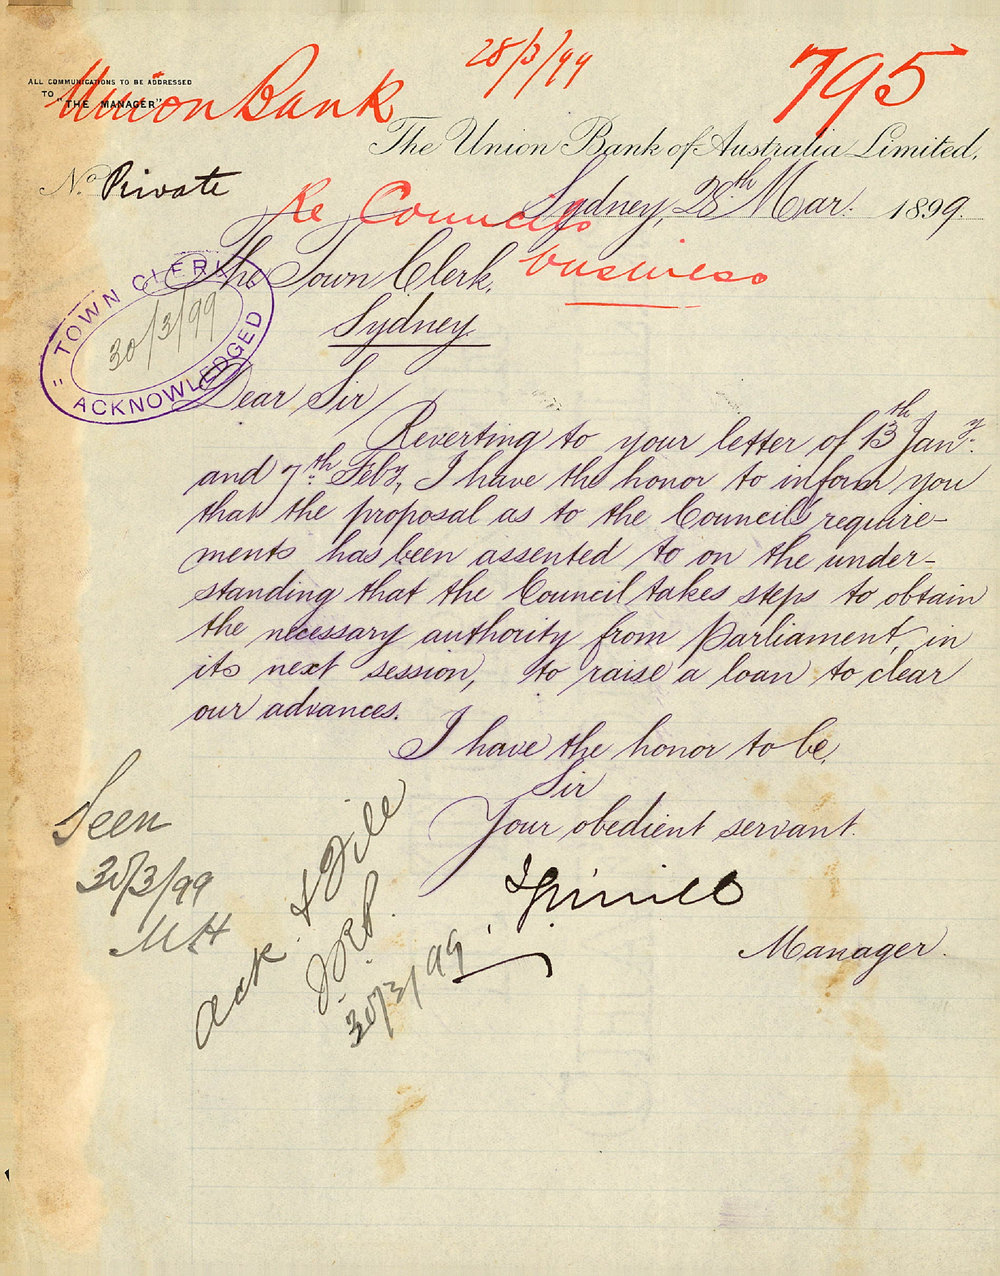 28/3/99
795
Union Bank
ALL COMMUNICATIONS TO BE ADDRESSED
TO "THE MANAGER"
The Union Bank of Australia Limited,
No. Private
Sydney, 28th Mar. 1899.
Re Councils
business
The Town Clerk,
Sydney.
TOWN CLERK
30/3/99
ACKNOWLEDGED
Dear Sir/
Reverting to your letter of 13th Jany.
and 7th Feby, I have the honor to inform you
that the proposal as to the Councils require-
ments has been assented to on the under-
standing that the Council takes steps to obtain
the necessary authority from Parliament, in
its next session, to raise a loan to clear
our advances.
I have the honor to be,
Sir
Your obedient servant.
Manager.
Seen
30/3/99
Ack. & File
30/3/99